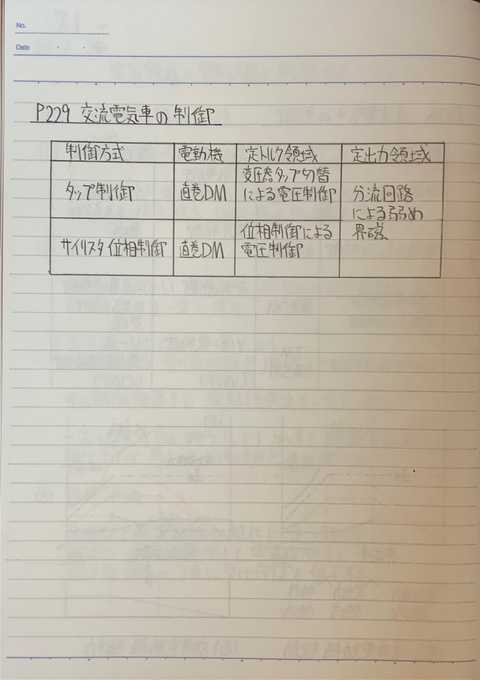 No.
Date
P229 交流電気車の制御
制御方式 電動機 定トルク領域 定出力領域
タップ制御 直巻DM 変圧器タップ切替による電圧制御 分流回路による弱め界磁
サイリスタ位相制御 直巻DM 位相制御による電圧制御